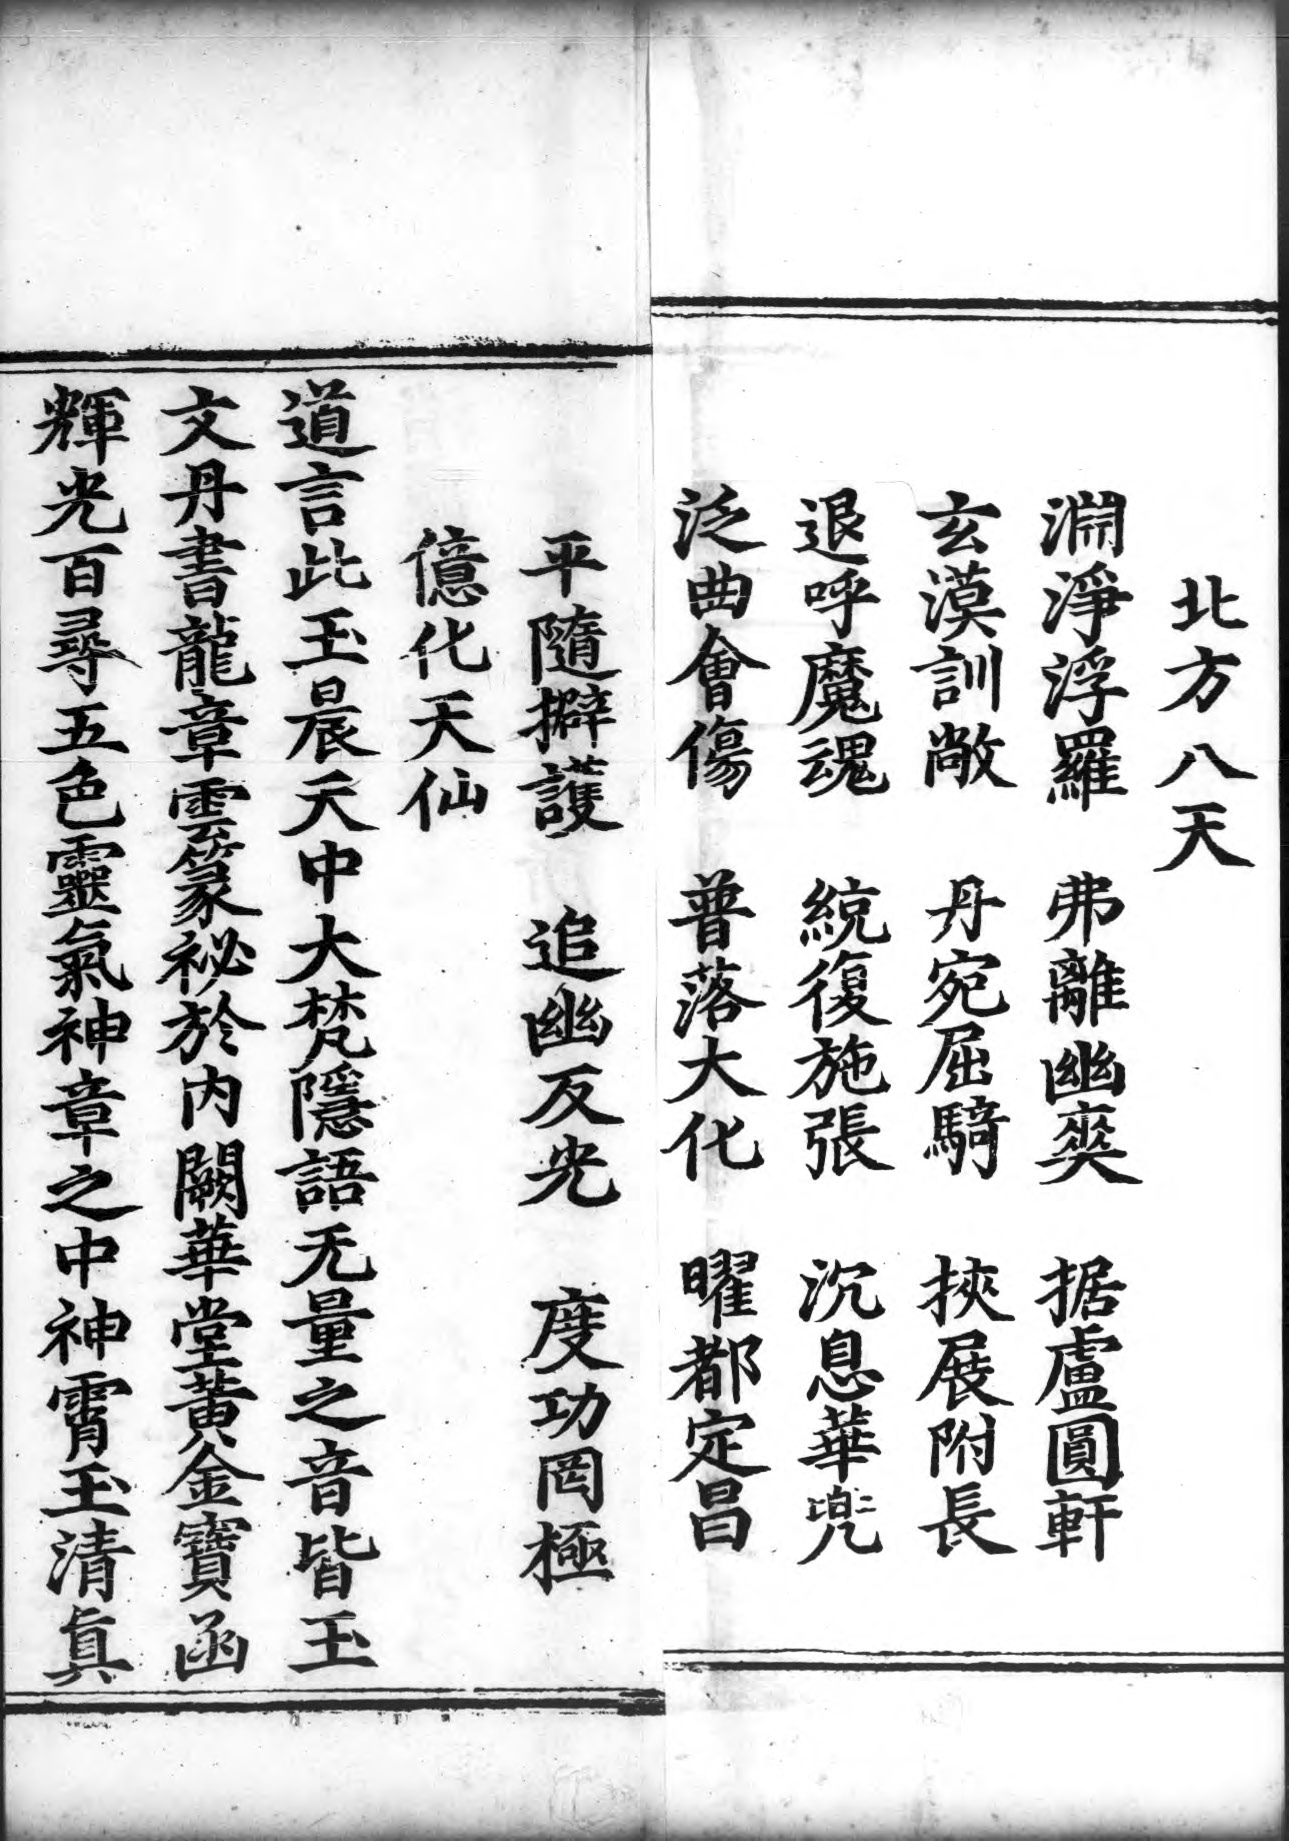 北方八天
淵淨浮羅　弗離幽奕　据盧圓軒
玄漠訓敞　丹宛屈騎　挾展附長
退呼魔魂　統復施張　沉息華兜
泛曲會傷　普落大化　曜都定昌
平隨擗護　追幽反光　度功罔極
億化天仙
道言此玉晨天中大梵隱語无量之音皆玉
文丹書龍章雲篆祕於內闕華堂黃金寶函
輝光百尋五色靈氣神章之中神霄玉清真